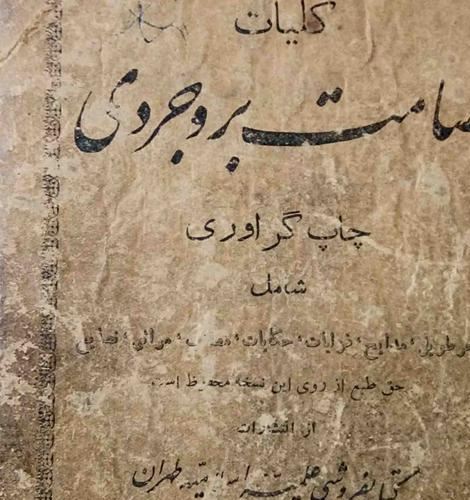 کلیات
صامت بروجردی
چاپ گراوری
شامل
مدایح، نزایات، حکایات، مصائب، مراثی، نصایح
حق طبع از روی این نسخه محفوظ است
از انتشارات
کتابفروشی علمیه اسلامیه طهران